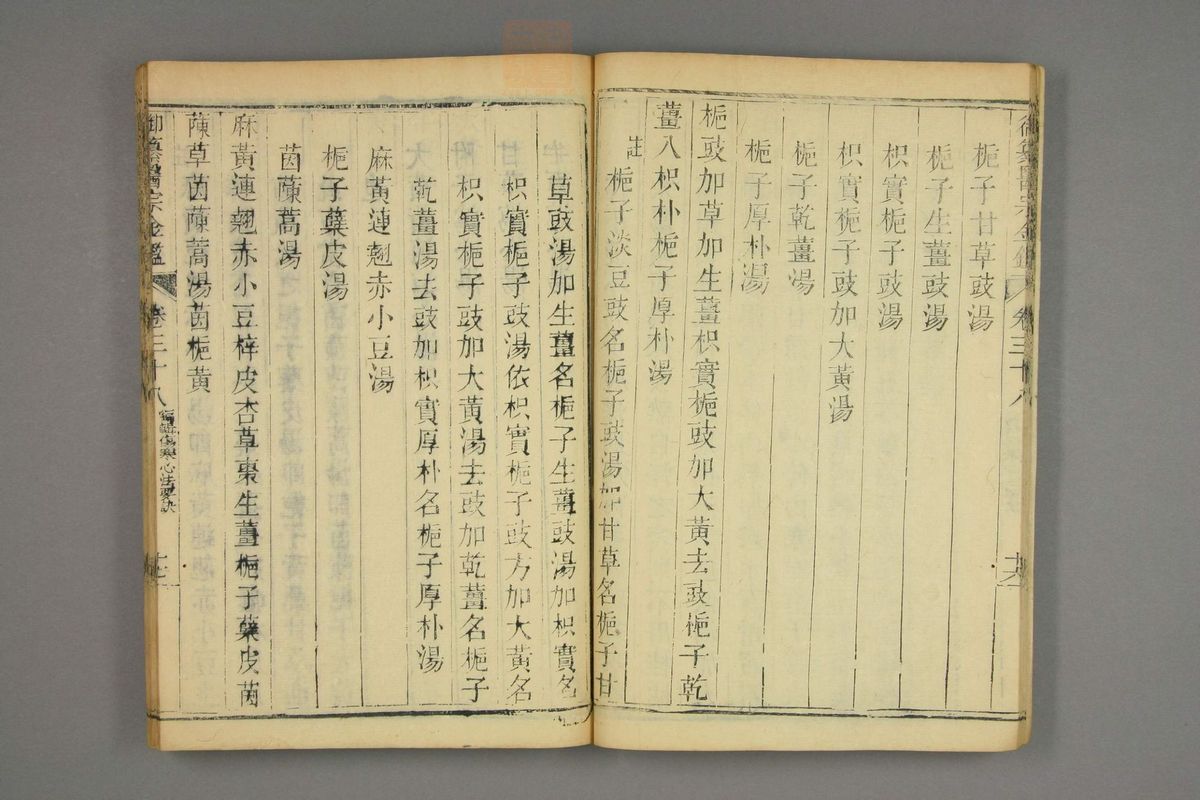 御纂醫宗金鑑 卷三十八
梔子甘草豉湯
梔子生薑豉湯
枳實梔子豉湯
枳實梔子豉加大黃湯
梔子乾薑湯
梔子厚朴湯
梔豉加草加生薑枳實梔豉加大黃去豉梔子乾
薑入枳朴梔子厚朴湯
註梔子淡豆豉名梔子豉湯加甘草名梔子甘
草豉湯加生薑名梔子生薑豉湯加枳實名
枳實梔子豉湯依枳實梔子豉方加大黃名
枳實梔子豉加大黃湯去豉加乾薑名梔子
乾薑湯去豉加枳實厚朴名梔子厚朴湯
麻黃連翹赤小豆湯
梔子蘗皮湯
茵蔯蒿湯
麻黃連翹赤小豆梓皮杏草棗生薑梔子蘗皮茵
蔯草茵蔯蒿湯茵梔黃
御纂醫宗金鑑 卷三十八 編輯傷寒心法要訣